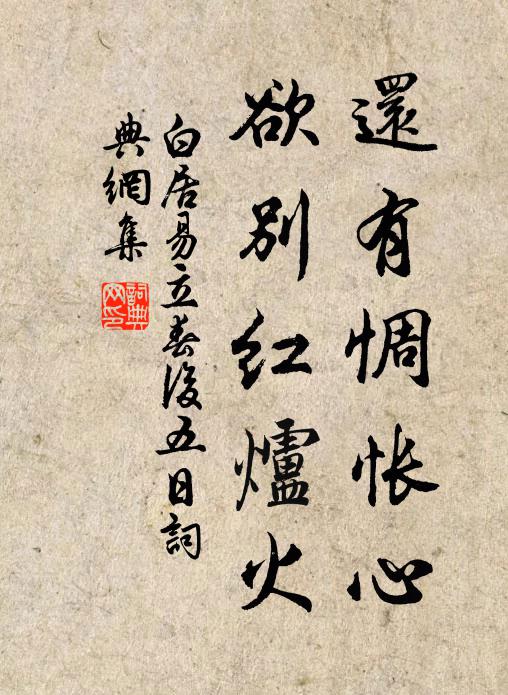 還有惆悵心
欲別紅爐火
白居易立春後五日詞
典網集
詞典
网印